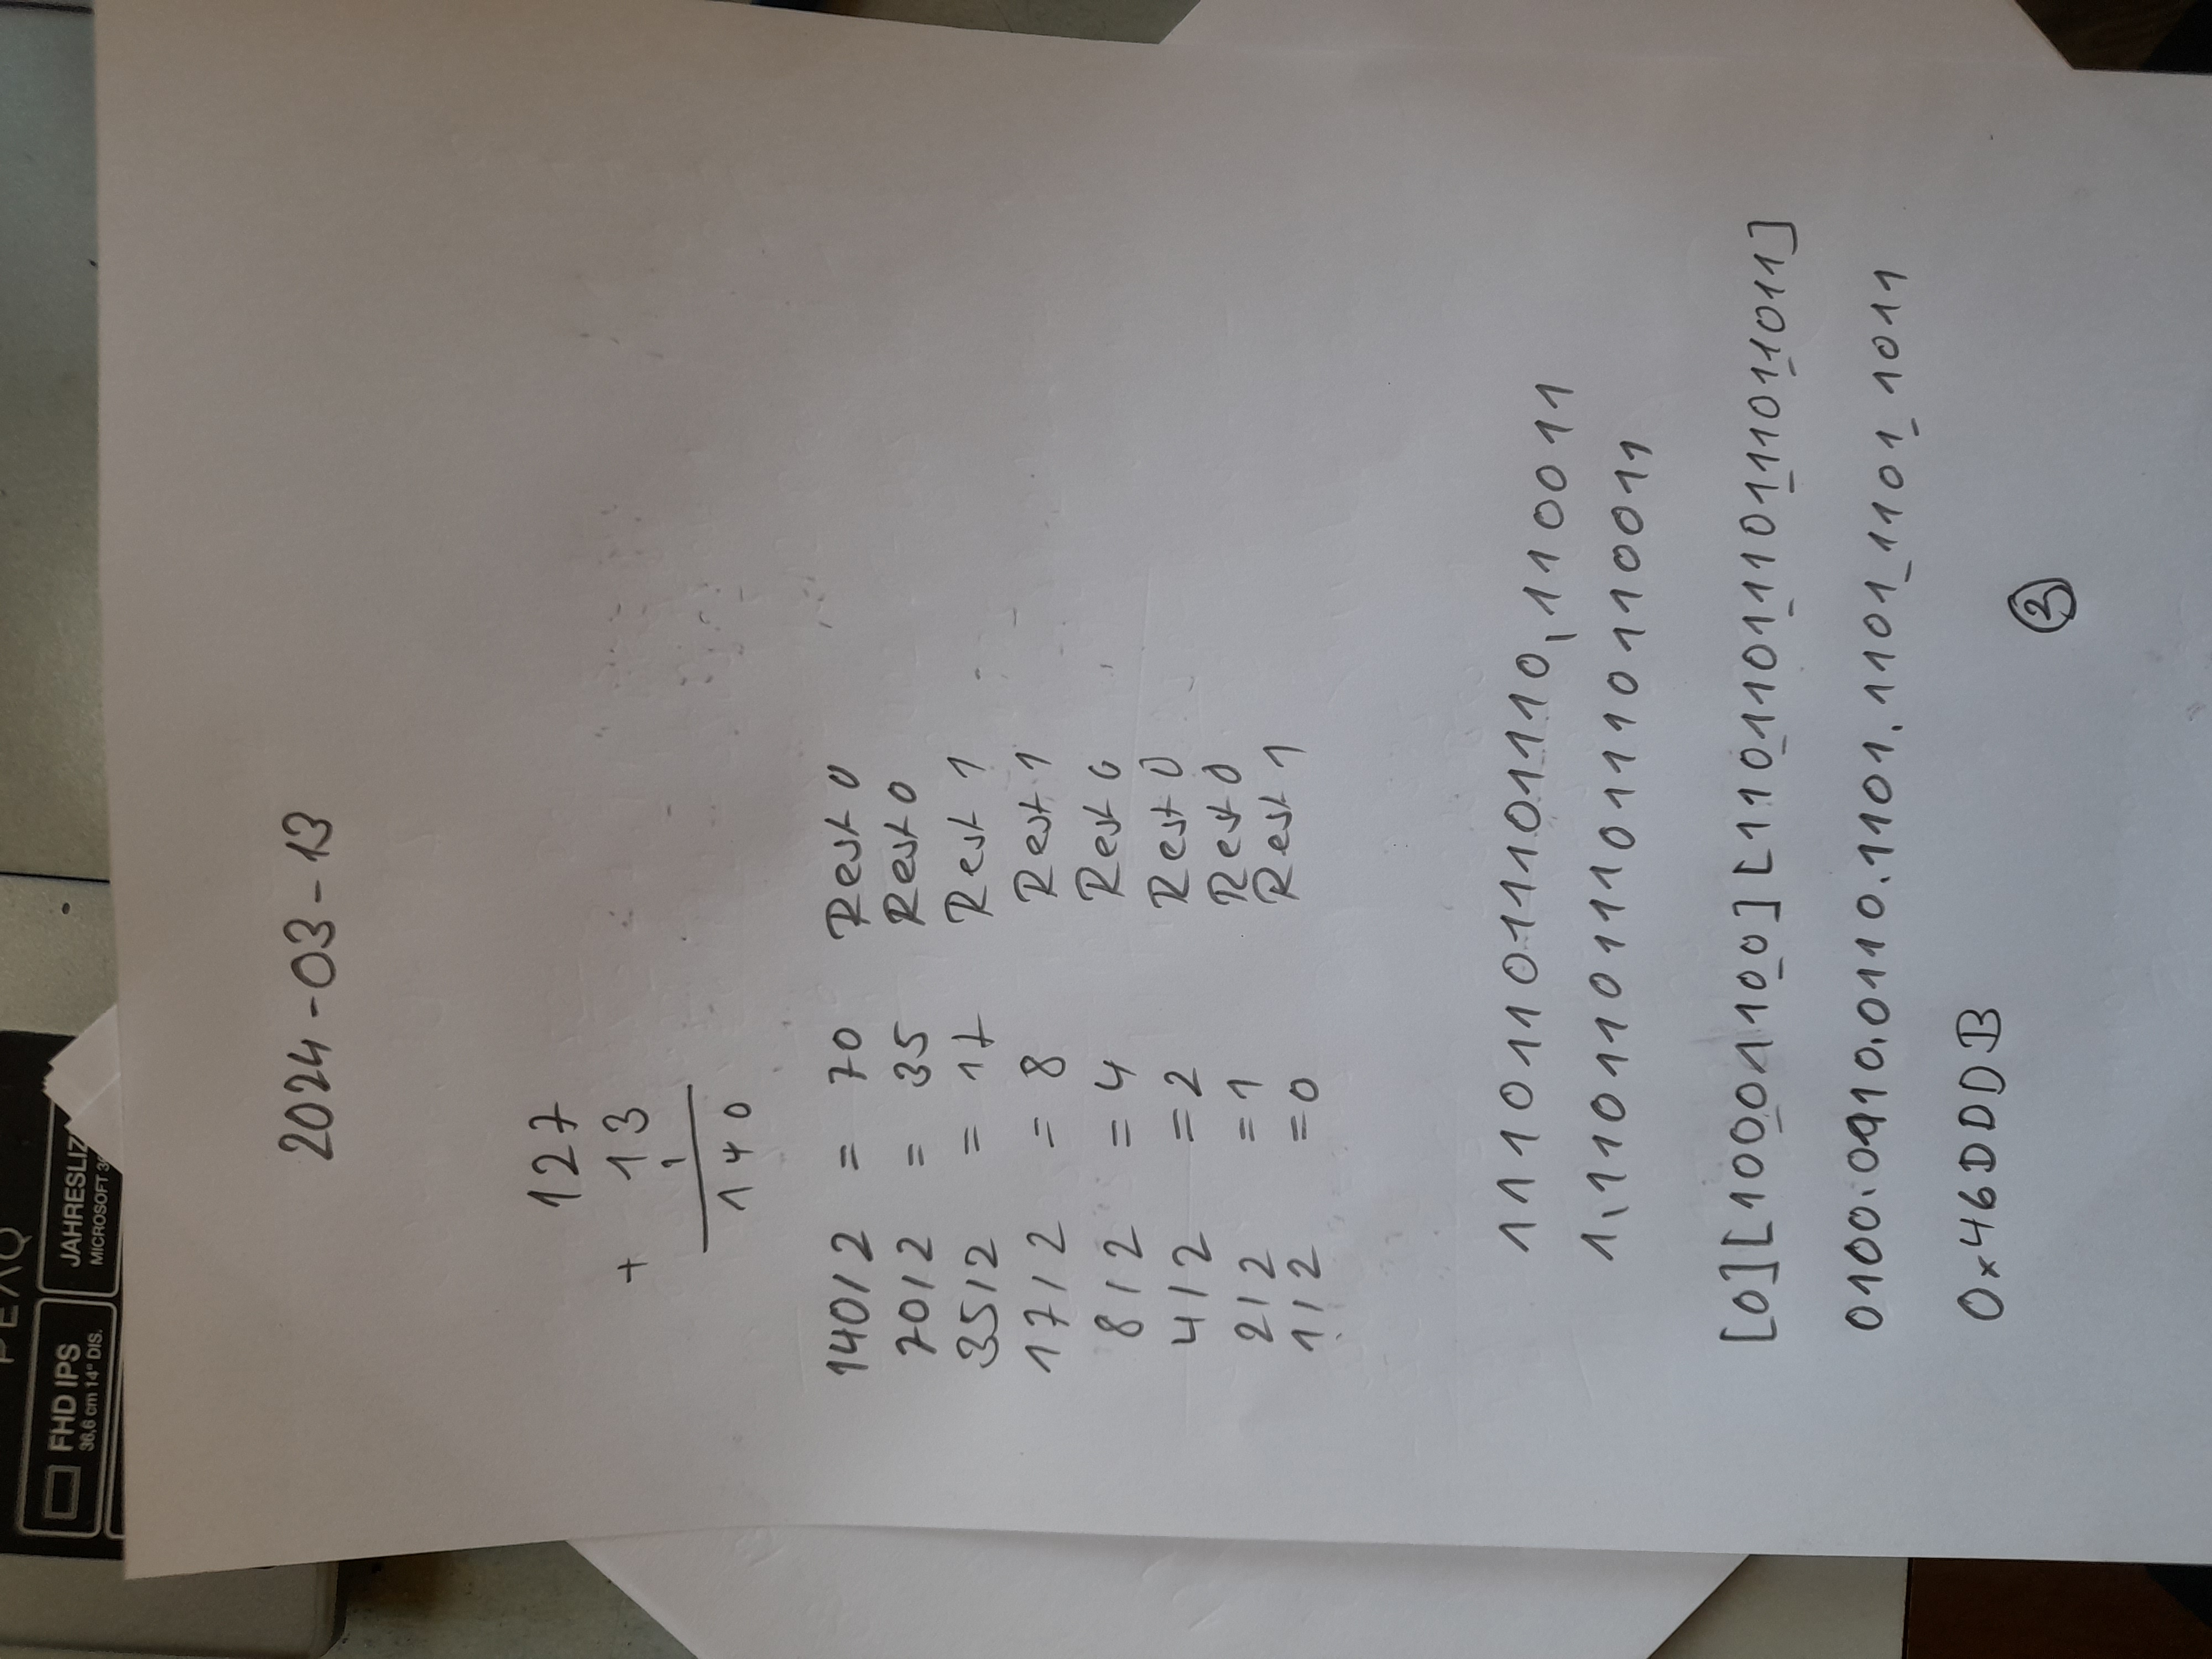 2024-03-13
127
+ 13
1
140
140/2 = 70 Rest 0
70/2 = 35 Rest 0
35/2 = 17 Rest 1
17/2 = 8 Rest 1
8/2 = 4 Rest 0
4/2 = 2 Rest 0
2/2 = 1 Rest 0
1/2 = 0 Rest 1
11101101110110,110011
1,1101101110111011001 1
[0][10001100][11011011011101110111011]
0100.0110.0110.1101.1101_1101_1011
0x46DDDDB
2
FHD IPS
36.6 cm 14" DIS.
JAHRESLIZ
MICROSOFT 36